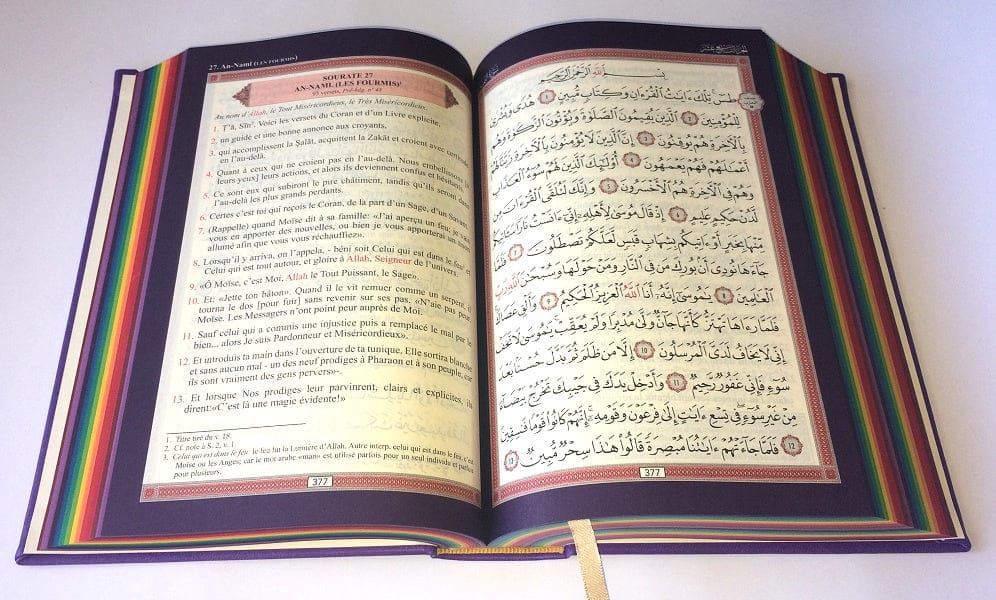 27. An-Naml (LES FOURMIS)
SOURATE 27
AN-NAML (LES FOURMIS)¹
93 versets, Pré-hég. n° 48
Au nom d'Allah, le Tout Miséricordieux, le Très Miséricordieux.
1. Ṭ'â, Sîn². Voici les versets du Coran et d'un Livre explicite,
2. un guide et une bonne annonce aux croyants,
3. qui accomplissent la Ṣalât, acquittent la Zakât et croient avec certitude
en l'au-delà.
4. Quant à ceux qui ne croient pas en l'au-delà. Nous embellissons [à
leurs yeux] leurs actions, et alors ils deviennent confus et hésitants.
5. Ce sont eux qui subiront le pire châtiment, tandis qu'ils seront dans
l'au-delà les plus grands perdants.
6. Certes c'est toi qui reçois le Coran, de la part d'un Sage, d'un Savant.
7. (Rappelle) quand Moïse dit à sa famille: «J'ai aperçu un feu; je vais
vous en apporter des nouvelles, ou bien je vous apporterai un
allumé afin que vous vous réchauffiez».
8. Lorsqu'il y arriva, on l'appela, - béni soit Celui qui est dans le feu³ et
Celui qui est tout autour, et gloire à Allah, Seigneur de l'univers.
9. «Ô Moïse, c'est Moi, Allah le Tout Puissant, le Sage».
10. Et: «Jette ton bâton». Quand il le vit remuer comme un serpent, il
tourna le dos [pour fuir] sans revenir sur ses pas. «N'aie pas peur,
Moïse. Les Messagers n'ont point peur auprès de Moi.
11. Sauf celui qui a commis une injustice puis a remplacé le mal par le
bien... alors Je suis Pardonneur et Miséricordieux».
12. Et introduis ta main dans l'ouverture de ta tunique, Elle sortira blanche
et sans aucun mal - un des neuf prodiges à Pharaon et à son peuple, car
ils sont vraiment des gens pervers»-.
13. Et lorsque Nos prodiges leur parvinrent, clairs et explicites, ils
dirent:«C'est là une magie évidente!»
1. Titre tiré du v. 18.
2. Cf. note à S. 2, v. 1.
3. Celui qui est dans le feu: le feu lut la Lumière d'Allah. Autre interp. celui qui est dans le feu, c'est
Moïse ou les Anges; car le mot arabe «man» est utilisé parfois pour un seul individu et parfois
pour plusieurs.
377
بِسْمِ اللَّهِ الرَّحْمَٰنِ الرَّحِيمِ
طسٓ تِلْكَ ءَايَٰتُ الْقُرْءَانِ وَكِتَابٍ مُّبِينٍ ١ هُدًى وَبُشْرَىٰ
لِلْمُؤْمِنِينَ ٢ الَّذِينَ يُقِيمُونَ الصَّلَوٰةَ وَيُؤْتُونَ الزَّكَوٰةَ وَهُم
بِالْءَاخِرَةِ هُمْ يُوقِنُونَ ٣ إِنَّ الَّذِينَ لَا يُؤْمِنُونَ بِالْءَاخِرَةِ زَيَّنَّا لَهُمْ
أَعْمَٰلَهُمْ فَهُمْ يَعْمَهُونَ ٤ أُو۟لَٰٓئِكَ الَّذِينَ لَهُمْ سُوٓءُ الْعَذَابِ
وَهُمْ فِي الْءَاخِرَةِ هُمُ الْأَخْسَرُونَ ٥ وَإِنَّكَ لَتُلَقَّى الْقُرْءَانَ مِن
لَّدُنْ حَكِيمٍ عَلِيمٍ ٦ إِذْ قَالَ مُوسَىٰ لِأَهْلِهِۦٓ إِنِّيٓ ءَانَسْتُ نَارًا سَـَٔاتِيكُم
مِّنْهَا بِخَبَرٍ أَوْ ءَاتِيكُم بِشِهَابٍ قَبَسٍ لَّعَلَّكُمْ تَصْطَلُونَ ٧ فَلَمَّا
جَآءَهَا نُودِيَ أَنۢ بُورِكَ مَن فِي النَّارِ وَمَنْ حَوْلَهَا وَسُبْحَٰنَ اللَّهِ رَبِّ
الْعَٰلَمِينَ ٨ يَٰمُوسَىٰٓ إِنَّهُۥٓ أَنَا اللَّهُ الْعَزِيزُ الْحَكِيمُ ٩ وَأَلْقِ عَصَاكَ
فَلَمَّا رَءَاهَا تَهْتَزُّ كَأَنَّهَا جَآنٌّ وَلَّىٰ مُدْبِرًا وَلَمْ يُعَقِّبْ يَٰمُوسَىٰ لَا تَخَفْ
إِنِّي لَا يَخَافُ لَدَيَّ الْمُرْسَلُونَ ١٠ إِلَّا مَن ظَلَمَ ثُمَّ بَدَّلَ حُسْنًۢا بَعْدَ
سُوٓءٍ فَإِنِّي غَفُورٌ رَّحِيمٌ ١١ وَأَدْخِلْ يَدَكَ فِي جَيْبِكَ تَخْرُجْ بَيْضَآءَ
مِنْ غَيْرِ سُوٓءٍ فِي تِسْعِ ءَايَٰتٍ إِلَىٰ فِرْعَوْنَ وَقَوْمِهِۦٓ إِنَّهُمْ كَانُوا۟ قَوْمًا فَٰسِقِينَ
١٢ فَلَمَّا جَآءَتْهُمْ ءَايَٰتُنَا مُبْصِرَةً قَالُوا۟ هَٰذَا سِحْرٌ مُّبِينٌ ١٣
377